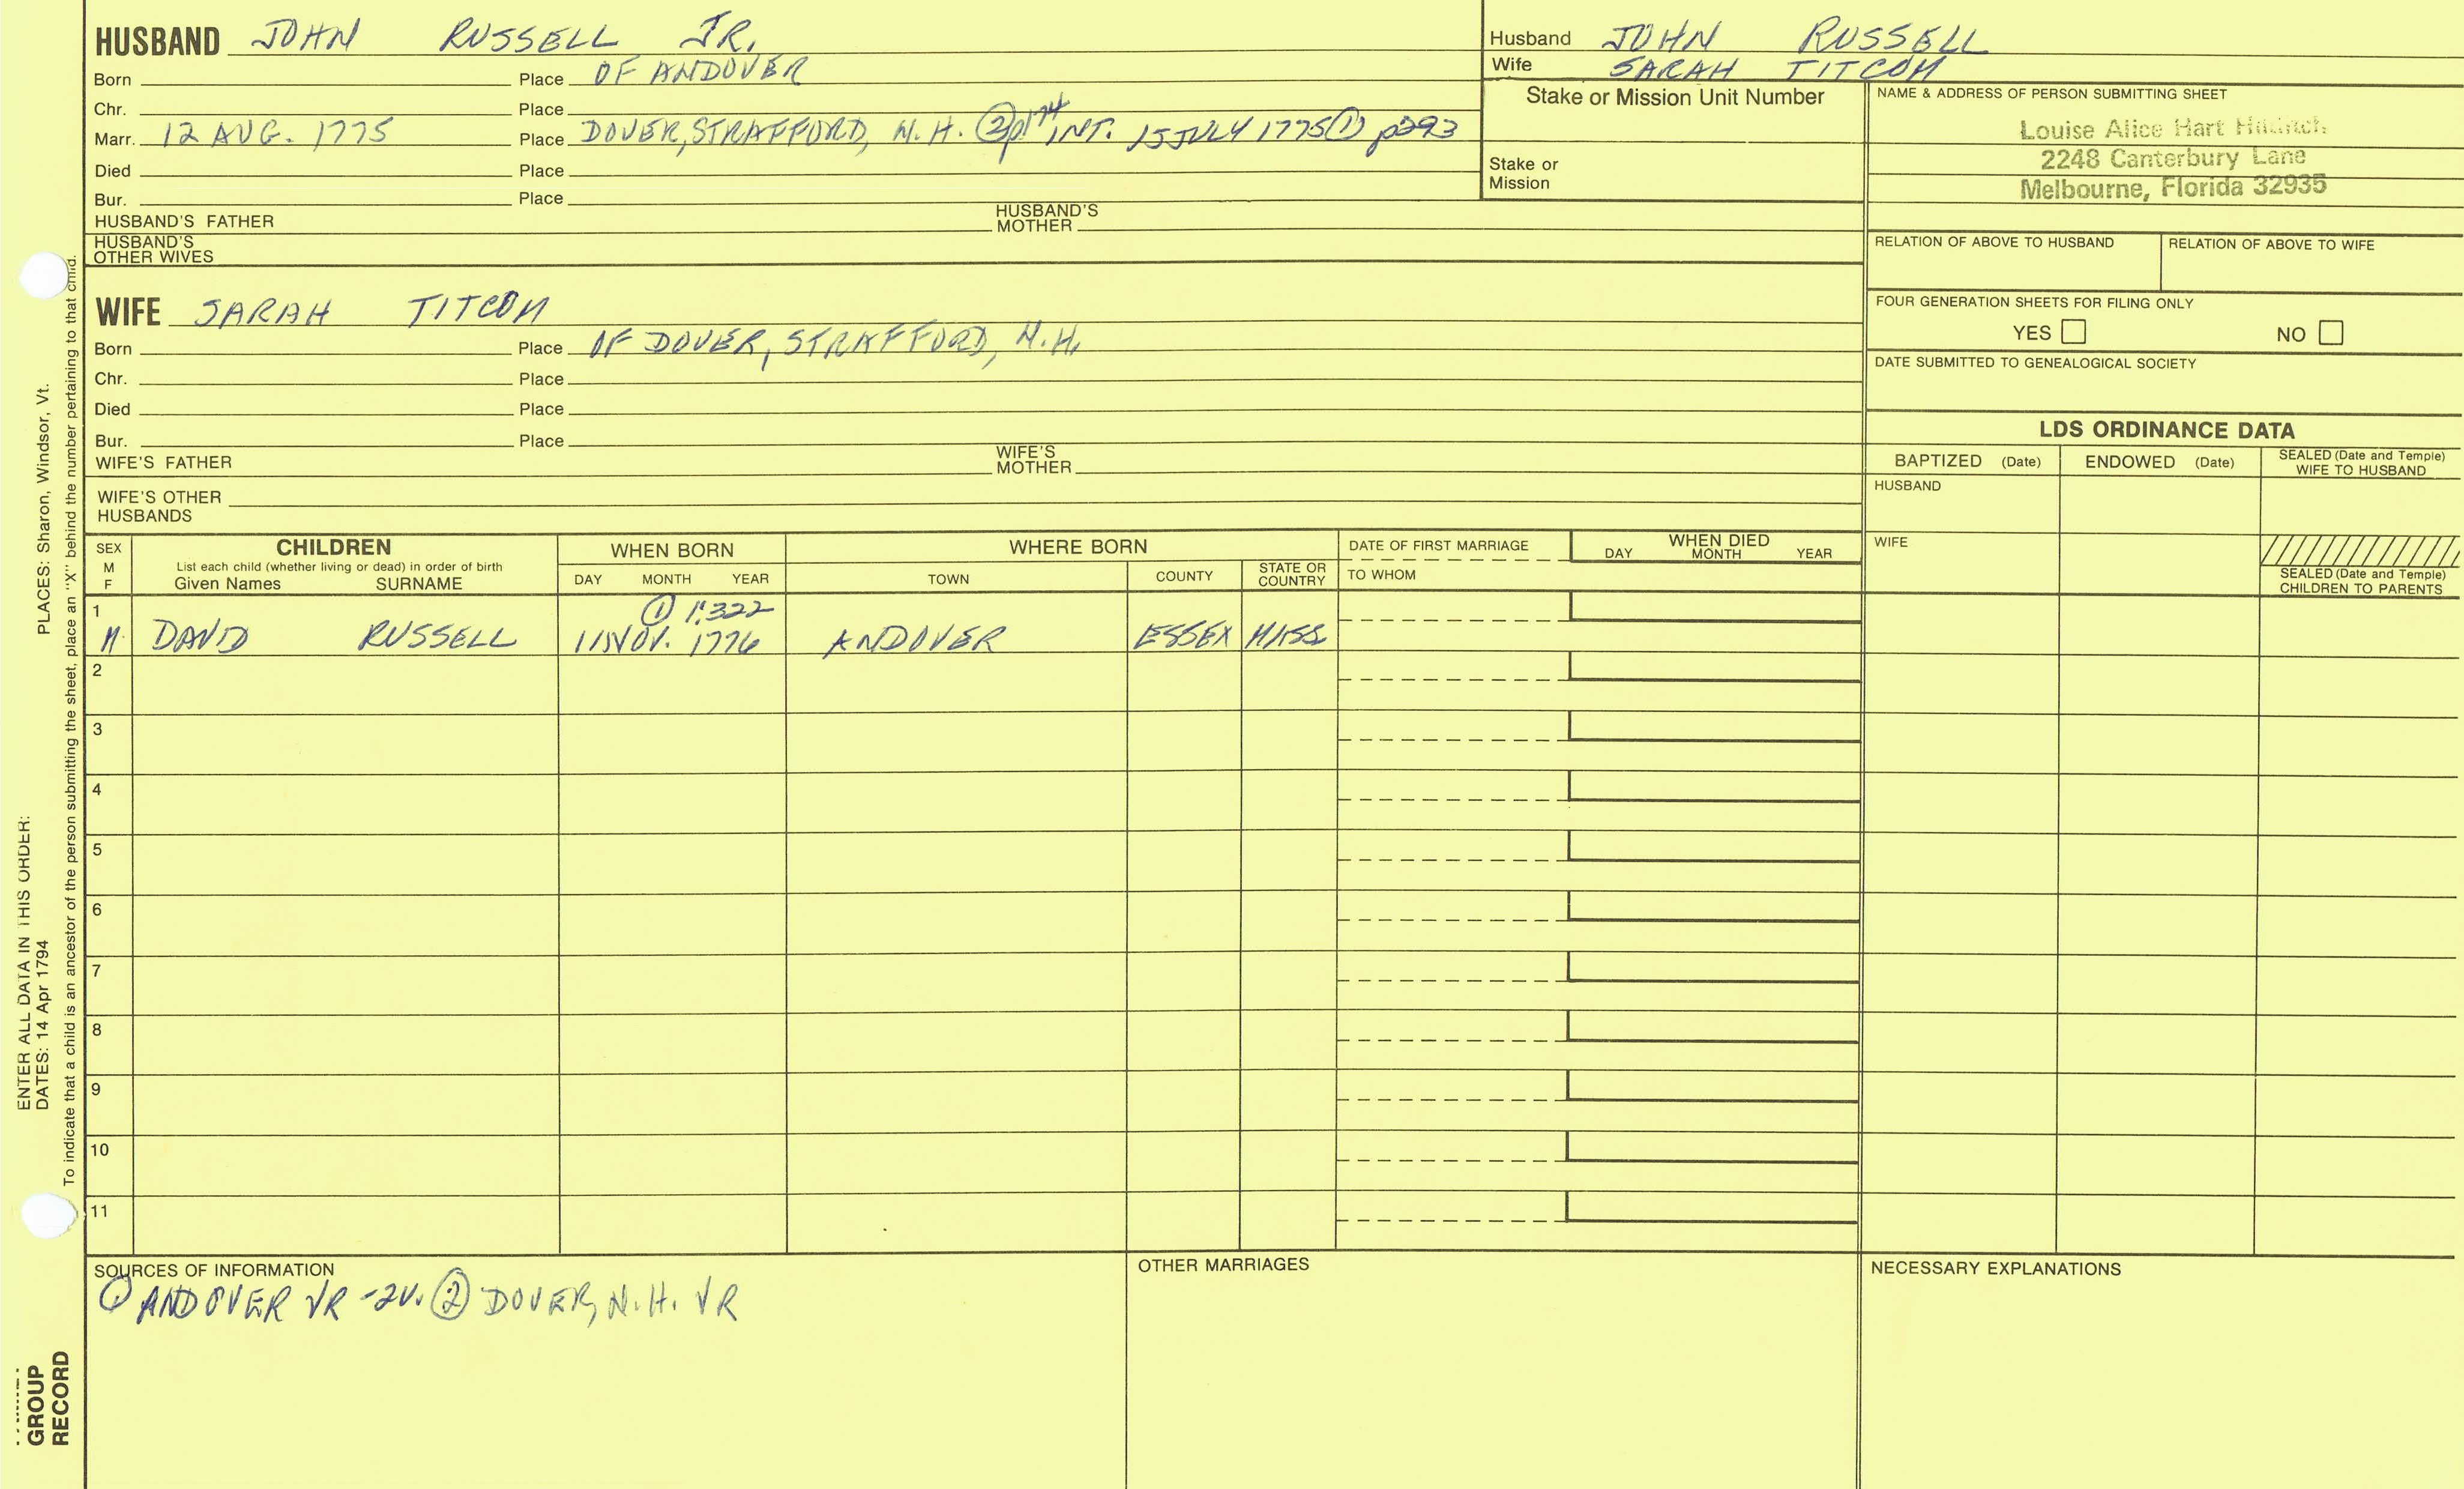 HUSBAND JOHN RUSSELL JR.
Born Place OF ANDOVER
Chr. Place
Marr. 12 AUG. 1775 Place DOVER, STRAFFORD, N.H. ② p174 INT. 15 JULY 1775 ① p293
Died Place
Bur. Place
HUSBAND'S FATHER HUSBAND'S MOTHER
HUSBAND'S OTHER WIVES
Husband JOHN RUSSELL
Wife SARAH TITCOM
Stake or Mission Unit Number
Stake or Mission
NAME & ADDRESS OF PERSON SUBMITTING SHEET
Louise Alice Hart
2248 Canterbury Lane
Melbourne, Florida 32935
RELATION OF ABOVE TO HUSBAND RELATION OF ABOVE TO WIFE
FOUR GENERATION SHEETS FOR FILING ONLY
YES NO
DATE SUBMITTED TO GENEALOGICAL SOCIETY
WIFE SARAH TITCOM
Born Place OF DOVER, STRAFFORD, N.H.
Chr. Place
Died Place
Bur. Place
WIFE'S FATHER WIFE'S MOTHER
WIFE'S OTHER HUSBANDS
LDS ORDINANCE DATA
BAPTIZED (Date) ENDOWED (Date) SEALED (Date and Temple) WIFE TO HUSBAND
HUSBAND
WIFE
SEALED (Date and Temple) CHILDREN TO PARENTS
SEX M F
CHILDREN
List each child (whether living or dead) in order of birth
Given Names SURNAME
WHEN BORN
DAY MONTH YEAR
WHERE BORN
TOWN COUNTY STATE OR COUNTRY
DATE OF FIRST MARRIAGE
TO WHOM
WHEN DIED
DAY MONTH YEAR
1 ① 1:322
M. DAVID RUSSELL 11 NOV. 1776 ANDOVER ESSEX MASS
2
3
4
5
6
7
8
9
10
11
SOURCES OF INFORMATION
① ANDOVER VR -2V. ② DOVER, N.H. VR
OTHER MARRIAGES
NECESSARY EXPLANATIONS
PLACES: Sharon, Windsor, Vt.
ENTER ALL DATA IN THIS ORDER:
DATES: 14 Apr 1794
To indicate that a child is an ancestor of the person submitting the sheet, place an "X" behind the number pertaining to that child.
GROUP
RECORD